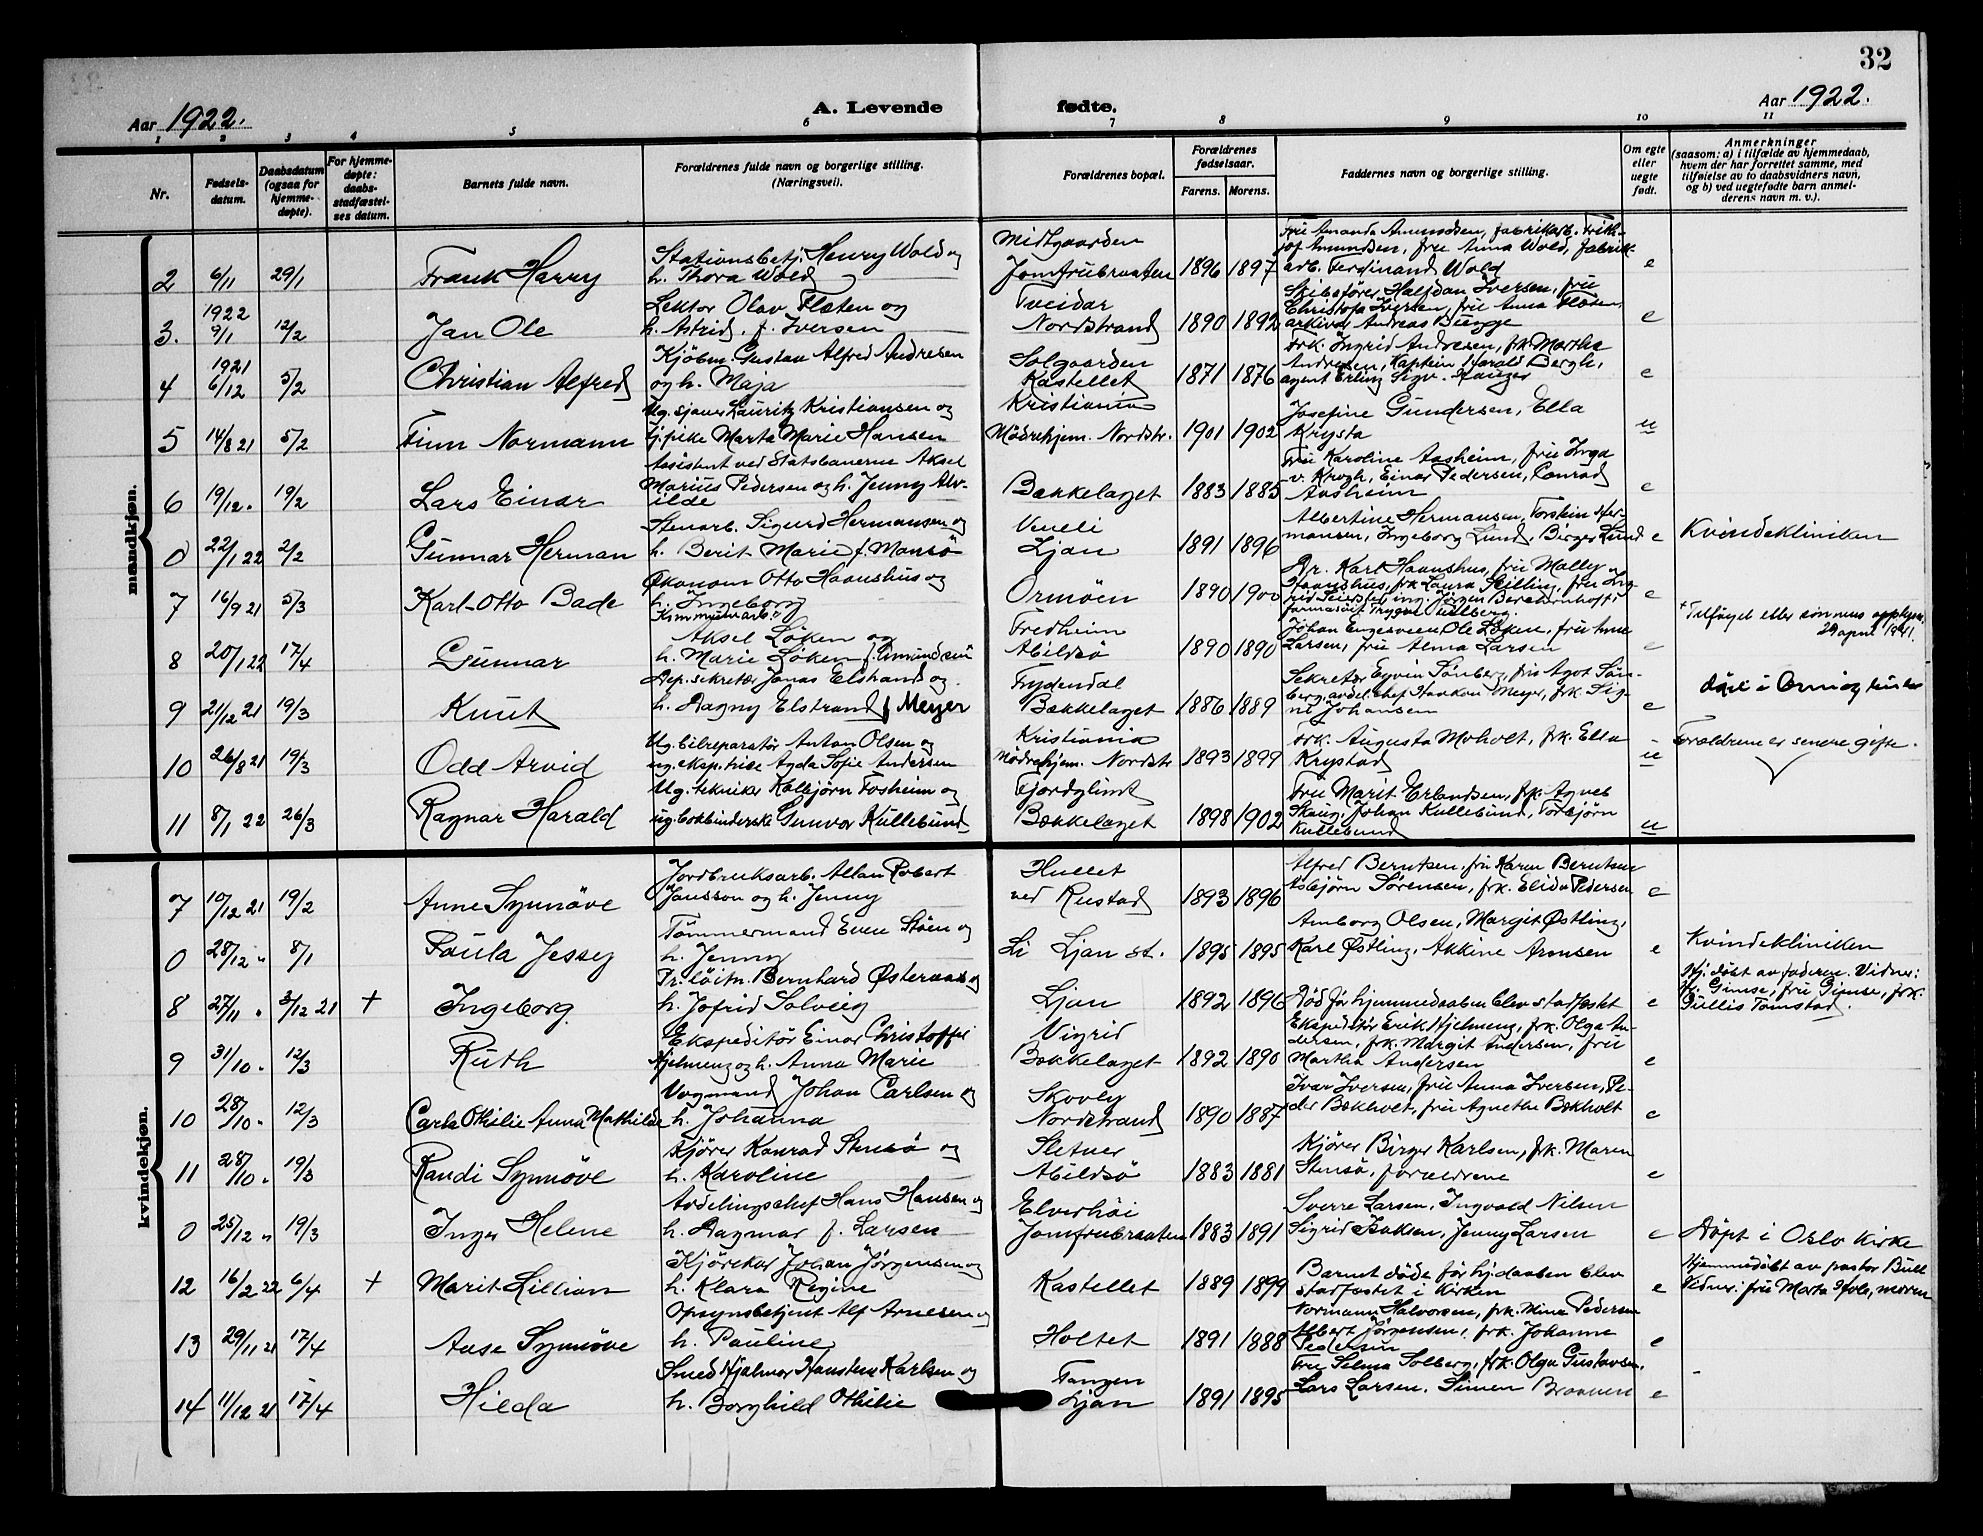 32
Aar 1922.
A. Levende fødte.
Aar 1922.
1 2 3 4 5 6 7 8 9 10 11
Nr.
Fødsels-
datum.
Daabsdatum
(ogsaa for
hjemme-
døpte).
For hjemme-
døpte:
daabs-
stadfæstel-
ses datum.
Barnets fulde navn.
Forældrenes fulde navn og borgerlige stilling.
(Næringsvei).
Forældrenes bopæl.
Forældrenes
fødselsaar.
Farens. Morens.
Faddernes navn og borgerlige stilling.
Om egte
eller
uegte
født.
Anmerkninger
(saasom: a) i tilfælde av hjemmedaab,
hvem der har forrettet samme, med
tilføielse av to daabsvidners navn,
og b) ved uegtefødte barn anmel-
derens navn m. v.).
mandkjøn.
2 6/11 29/1 Frank Harry
Stationsbetj. Henry Wold og
h. Thora Wold
Midtgaarden
Jomfrubraaten 1896 1897
Fru Amanda Amundsen, fabrikarb. Frith-
jof Amundsen, fru Anna Wold, fabrik-
arb. Ferdinand Wold e
3. 1922 9/1 12/2 Jan Ole
Lektor Olav Flæten og
h. Astrid, f. Iversen
Tveidar
Nordstrand 1890 1892
Skibsfører Halfdan Iversen, fru
Christofa Iversen, fru Anna Flæten,
arkivar Andreas Bugge e
4 1921 6/12 5/2 Christian Alfred
Kjøbm. Gustav Alfred Andresen
og h. Maja
Solgaarden
Kastellet 1871 1876
Frk. Ingrid Andresen, frk. Martha
Andresen, Kaptein Harald Bergh,
agent Erling Sigv. Hauger e
5 14/8 21 5/2 Finn Normann
Ug. sjauer Lauritz Kristiansen og
tj.pike Marta Marie Hansen
Kristiania
Mødrehjem. Nordstr. 1901 1902
Josefine Gundersen, Ella
Krysta u
6 19/12. 19/2 Lars Einar
Assistent ved Statsbanerne Aksel
Marius Pedersen og h. Jenny Alv-
ilde
Bækkelaget 1883 1885
Fru Karoline Aasheim, fru Inga
v. Krogh, Einar Pedersen, Conrad
Aasheim e
0 22/1 22 2/2 Gunnar Herman
Stenarb. Sigurd Hermansen og
h. Berit Marie f. Mansø
Veneli
Ljan 1891 1896
Albertine Hermansen, Torstein Her-
mansen, Ingeborg Lund, Berger Lund e
Kvindekliniken
7 16/9 21 5/3 Karl-Otto Bade
Økonom Otto Haanshus og
h. Ingeborg
Ormøen 1890 1900
Dr. Karl Haanshus, fru Mally
Haanshus, frk. Laura Skilling, fru Ing-
e
8 20/1 22 17/4 Gunnar
Aksel Løken og
h. Marie Løken f. Amundsen
Fredheim
Abildsø 1890 1890
Johan Engesveen, Ole Løken, fru Anne
Larsen, fru Alma Larsen e
9 21/12 21 19/3 Knut
Dep. sekretær Jonas Elstrand og
h. Dagny Elstrand f. Meyer
Frydendal
Bækkelaget 1886 1889
Sekretær Eyvin Sønberg, fru Agot Søn-
berg, avdel.chef Haakon Meyer, frk. Sig-
ne Johansen e
10 26/8 21 19/3 Odd Arvid
Ug. bilreparatør Anton Olsen og
ug. eksp.trise Agda Sofie Andersen
Kristiania
Mødrehjem. Nordstr. 1893 1899
Frk. Augusta Moholt, frk. Ella
Krystad u
Forældrene er senere gifte.
11 8/1 22 26/3 Ragnar Harald
Ug. tekniker Kolbjørn Fosheim og
ug. bokbinderske Gunvor Kullebund
Fjordglimt
Bækkelaget 1898 1902
Fru Marit Erlandsen, frk. Agnes
Skaug, Johan Kullebund, Torbjørn
Kullebund u
kvindekjøn.
7 10/12 21 19/2 Anne Synnøve
Jordbruksarb. Allan Robert
Jansson og h. Jenny
Hullet
ved Rustad 1893 1896
Alfred Berntsen, fru Karen Berntsen
Asbjørn Sørensen, frk. Elida Pedersen e
0 28/12 " 8/1 Paula Jessy
Tømmermand Even Støen og
h. Jenny
Li Ljan st. 1895 1895
Amborg Olsen, Margit Østling,
Karl Østling, Akkine Aronsen e
Kvindekliniken
8 27/11 " 3/12 21 + Ingeborg
Pr. løitn. Bernhard Østeraas og
h. Jofrid Solveig
Ljan 1892 1896
Død før hjemmedaaben blev stadfæstet e
Hj. døbt av faderen. Vidner:
Hr. Gimse, fru Gimse, frk.
Gullis Tomstad.
9 31/10. 12/3 Ruth
Ekspeditør Einar Christoffer
Hjelmeng og h. Anna Marie
Vigrid
Bækkelaget 1892 1890
Ekspeditør Erik Hjelmeng, frk. Olga An-
dersen, frk. Margit Andersen, fru
Martha Andersen e
10 28/10. 12/3 Carla Othilie Anna Mathilde
Vognmand Johan Carlsen og
h. Johanna
Skovly
Nordstrand 1890 1887
Ivar Iversen, fru Anna Iversen, Pe-
der Bækholt, fru Agnethe Bækholt e
11 28/10. 19/3 Randi Synnøve
Kjører Konrad Stensø og
h. Karoline
Sletner
Abildsø 1883 1881
Kjører Birger Karlsen, frk. Maren
Stensø, forældrene e
0 25/12 " 19/3 Inger Helene
Avdelingschef Hans Hansen og
h. Dagmar f. Larsen
Elverhøi
Jomfrubraaten 1883 1891
Sverre Larsen, Ingvald Nilsen
Sigrid Isaksen, Jenny Larsen e
Døpt i Oslo Kirke
12 16/2 22 6/4 + Marit Lillian
Kjørekar Johan Jørgensen og
h. Klara Regine
Kastellet 1889 1899
Barnet døde før hj.daaben blev
stadfæstet i Kirken e
Hjemmedøbt av pastor Bull
Vidner: fru Marta Hvols, moren
13 29/11 21 17/4 Aase Synnøve
Opsynsbetjent Alf Arnesen og
h. Pauline
Holtet 1891 1888
Normann Halvorsen, frk. Mina Pedersen
Albert Jørgensen, frk. Johanne
Pedersen e
14 11/12 21 17/4 Hilda
Smed Hjalmar Haustein Karlsen og
h. Borghild Othilie
Tangen
Ljan 1891 1895
Fru Selma Solberg, frk. Olga Gustavsen.
Lars Larsen. Simen Braanen e